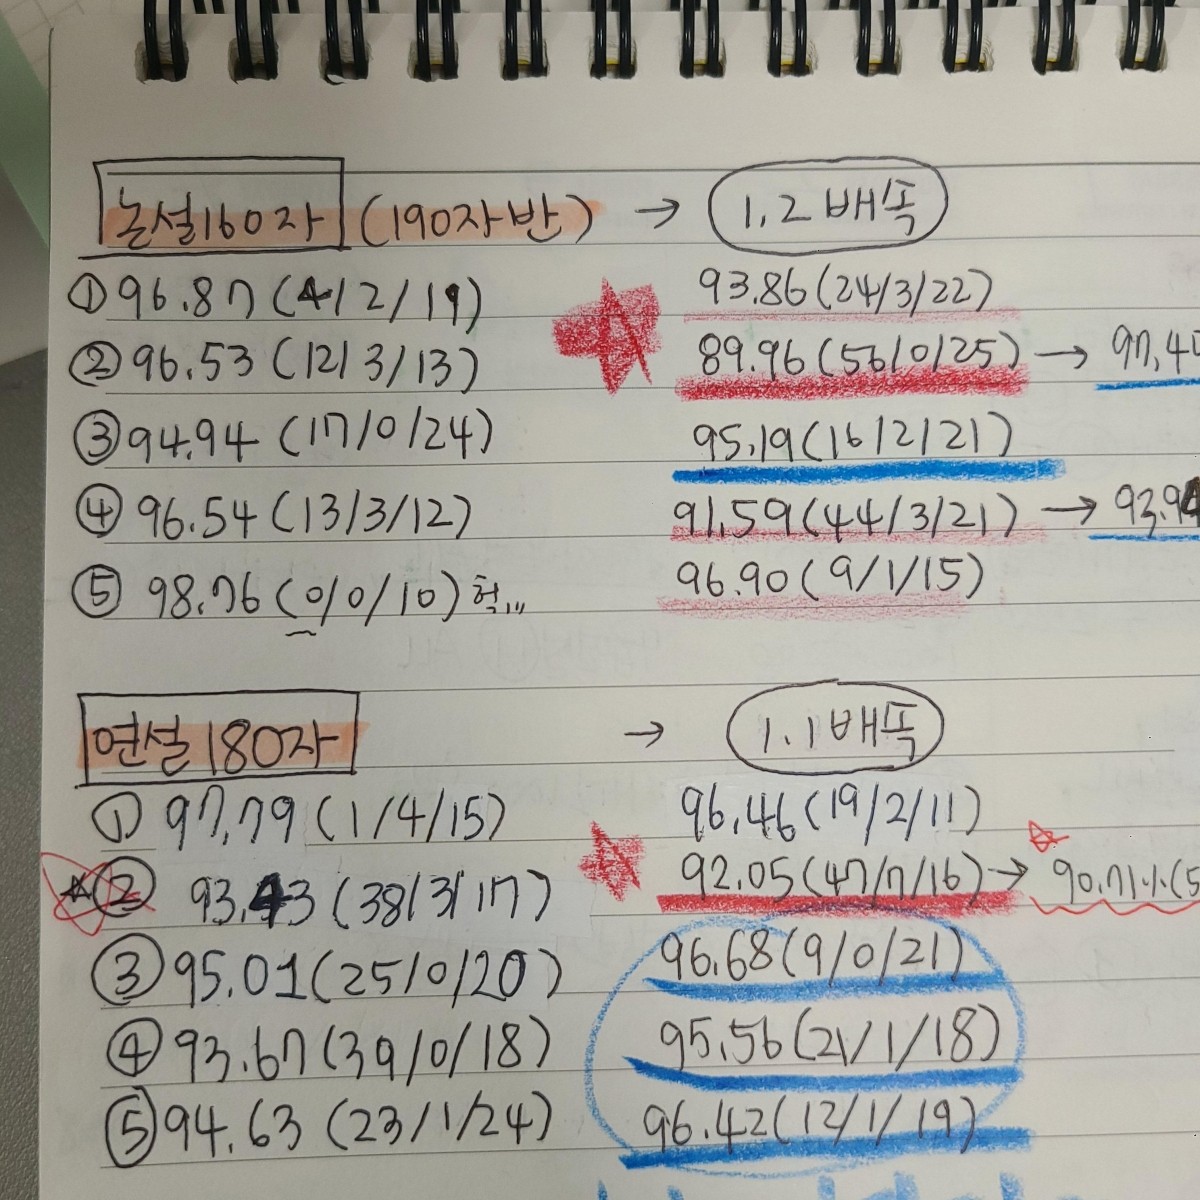 논설160자 (190자반) → 1.2배속
① 96.87 (4/2/19) 93.86(24/3/22)
② 96.53 (12/3/13) 89.96(56/0/25) →
③ 94.94 (17/0/24) 95.19(16/2/21)
④ 96.54 (13/3/12) 91.59(44/3/21) →
⑤ 98.76 (0/0/10) 헉,,, 96.90 (9/1/15)
연설180자 → 1.1배속
① 97.79 (1/4/15) 96.46(19/2/11)
☆② 93.43 (38/3/17) 92.05(47/7/16) → ☆ 90.71%(5
③ 95.01 (25/0/20) 96.68(9/0/21)
④ 93.67 (39/0/18) 95.56(21/1/18)
⑤ 94.63 (23/1/24) 96.42(12/1/19)